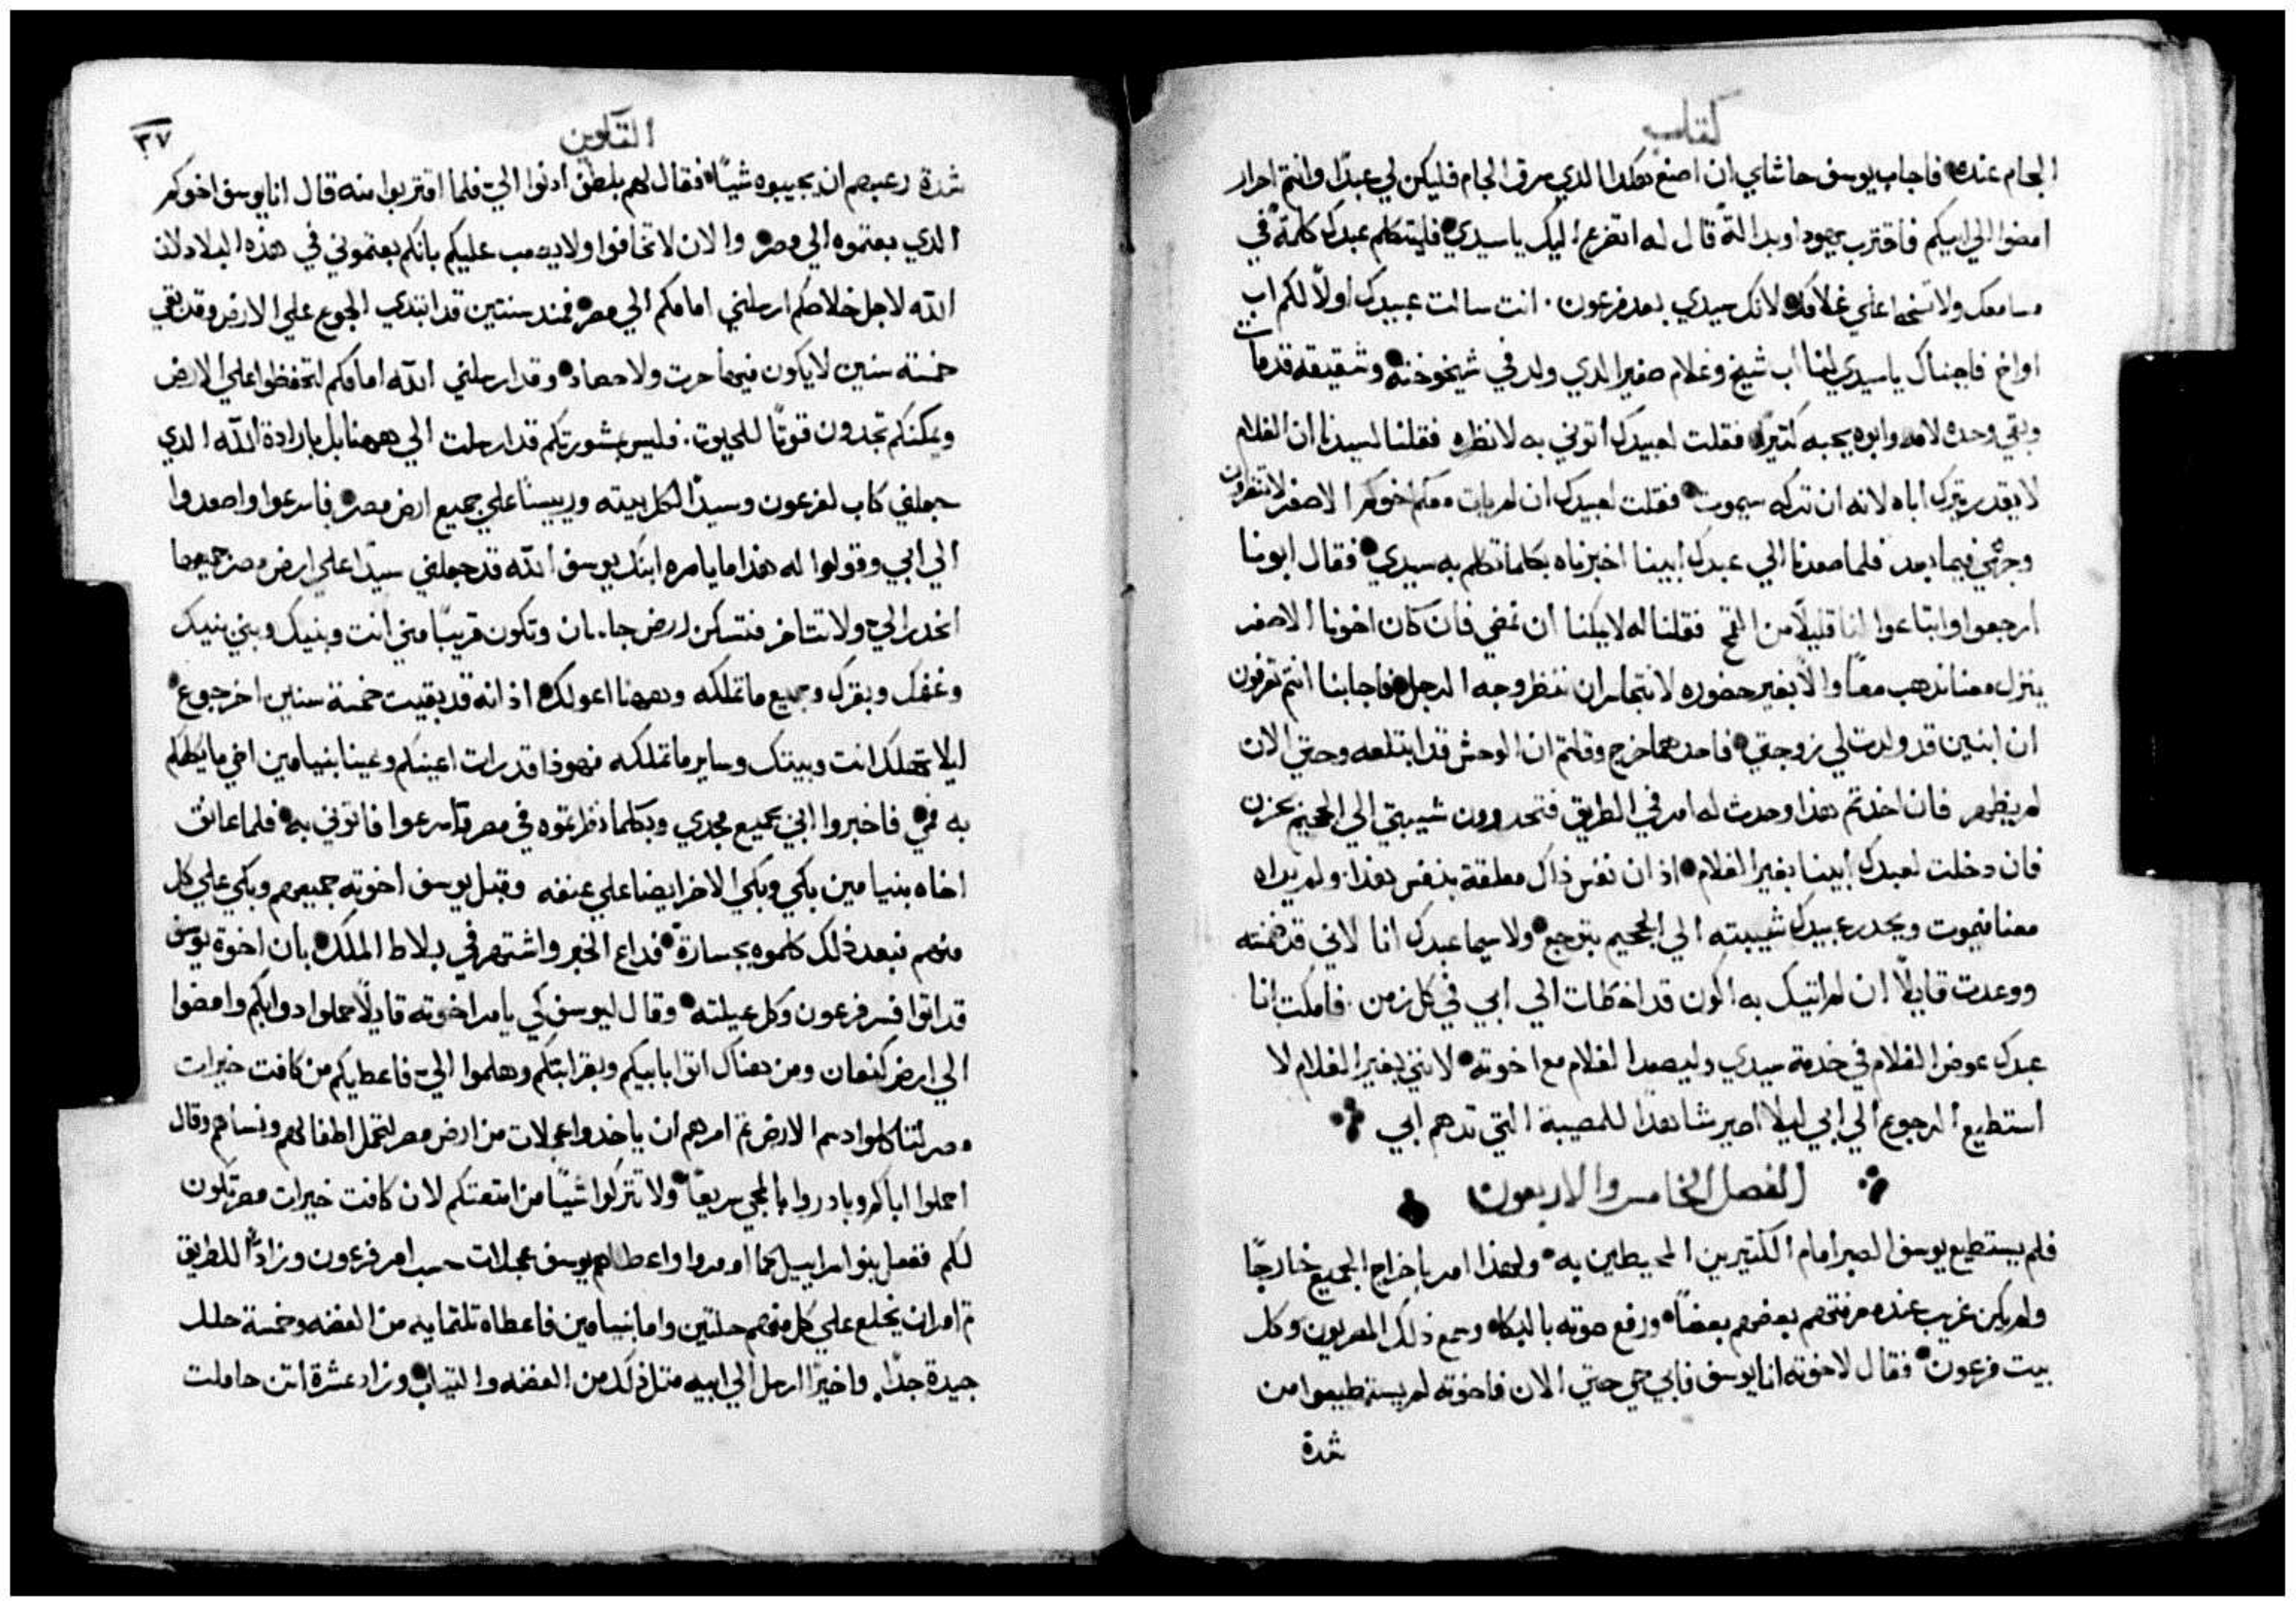 كتاب
الجام عنده فاجاب يوسف حاشاي ان اصنع هكذا الدي سرق الجام فليكن لي عبدًا وانتم احرار
امضوا الي ابيكم فاقترب يهودا وبدالةٍ قال له اتضرع اليك يا سيدي فليتكلم عبدك كلمةً في
مسامعك ولا تسخط علي غلامك لانك سيدي بعد فرعون. انت سالت عبيدك اولًا لكم اب
او اخ فاجبناك يا سيدي لنا اب شيخ وغلام صغير الدي ولد في شيخوخته وشقيقه قد مات
وبقي وحده لامه وابوه يحبه كثيرًا فقلت لعبيدك اتوني به لانظره فقلنا لسيدنا ان الغلام
لا يقدر يترك اباه لانه ان تركه سيموت فقلت لعبيدك ان لم يات معكم اخوكم الاصغر لا تنظرون
وجهي فيما بعد فلما صعدنا الي عبدك ابينا اخبرناه بكلما تكلم به سيدي فقال ابونا
ارجعوا وابتاعوا لنا قليلًا من القمح فقلنا له لا يمكنا ان نمضي فان كان اخونا الاصغر
ينزل معنا ندهب معًا والا بغير حضوره لا نتجاسر ان ننظر وجه الرجل فاجابنا انتم تعرفون
ان ابنين قد ولدت لي زوجتي فاحدهما خرج وقلتم ان الوحش قد ابتلعه وحتي الان
لم يظهر فان اخدتم هذا وحدث له امر في الطريق فتحدرون شيبتي الي الجحيم بحزن
فان دخلت لعبدك ابينا بغير الغلام اذ ان نفس ذاك معلقة بنفس هذا ولم يراه
معنا فيموت ويحدر عبيدك شيبته الي الجحيم بتوجع ولا سيما عبدك انا لاني قد ضمنته
ووعدت قايلًا ان لم اتيك به اكون قد اخطات الي ابي في كل زمن. فامكث انا
عبدك عوض الغلام في خدمة سيدي وليصعد الغلام مع اخوته لانني بغير الغلام لا
استطيع الرجوع الي ابي ليلا اصير شاهدًا للمصيبة التي تدهم ابي
الفصل الخامس والاربعون
فلم يستطيع يوسف الصبر امام الكثيرين المحيطين به ولهذا امر باخراج الجميع خارجًا
ولم يكن غريب عند معرفتهم بعضهم بعضًا ورفع صوته بالبكاه وسمع ذلك المصريون وكل
بيت فرعون فقال لاخوته انا يوسف فابي حي حتي الان فاخوته لم يستطيعوا من
شدة
التكوين
٣٧
شدة رعبهم ان يجيبوه شيًا فقال لهم بلطفٍ ادنوا الي فلما اقتربوا منه قال انا يوسف اخوكم
الدي بعتموه الي مصر والان لا تخافوا ولا يصعب عليكم بانكم بعتموني في هذه البلاد لان
الله لاجل خلاصكم ارسلني امامكم الي مصر فمند سنتين قد ابتدي الجوع علي الارض وقد بقي
خمسة سنين لا يكون فيها حرت ولا حصاد وقد ارسلني الله امامكم لتحفظوا علي الارض
ويمكنكم تجدون قوتًا للحيوت. فليس بمشورتكم قد ارسلت الي ههنا بل بارادة الله الدي
جعلني كاب لفرعون وسيدًا لكل بيته ورييسًا علي جميع ارض مصر فاسرعوا واصعدوا
الي ابي وقولوا له هذا ما يامره ابنك يوسف الله قد جعلني سيدًا علي ارض مصر جميعها
انحدر الي ولا تتاخر فتسكن ارض جاسان وتكون قريبًا مني انت وبنيك وبني بنيك
وغنمك وبقرك وجميع ما تملكه وههنا اعولك اذ انه قد بقيت خمسة سنين اخر جوع
ليلا تهلك انت وبيتك وساير ما تملكه فهوذا قد رات اعينكم وعينا بنيامين اخي ما يكلمكم
به فمي فاخبروا ابي بجميع مجدي وبكلما نظرتموه في مصر واسرعوا فاتوني به فلما عانق
اخاه بنيامين بكي وبكي الاخر ايضا علي عنقه وقبل يوسف اخوته جميعهم وبكي علي كل
منهم فبعد ذلك كلموه بجسارة فداع الخبر واشتهر في بلاط الملك بان اخوة يوسف
قد اتوا فسر فرعون وكل عيلته وقال ليوسف كي يامر اخوته قايلًا حملوا دوابكم وامضوا
الي ارض كنعان ومن هناك اتوا بابيكم وبقرابتكم وهلموا الي فاعطيكم من كافت خيرات
مصر لتاكلوا دسم الارض ثم امرهم ان ياخدوا عجلات من ارض مصر لتحمل اطفالهم ونساهم وقال
احملوا اباكم وبادروا بالمجي سريعًا ولا تتركوا شيًا من امتعتكم لان كافت خيرات مصر تكون
لكم ففعل بنوا اسراييل كما اومروا واعطاهم يوسف عجلات حسب امر فرعون وزادًا للطريق
ثم امر ان يخلع علي كل منهم حلتين واما بنيامين فاعطاه ثلثمايه من الفضه وخمسة حلل
جيدة جدًا. واخيرًا ارسل الي ابيه متل ذلك من الفضه والتياب وزاد عشرة اتن حاملت